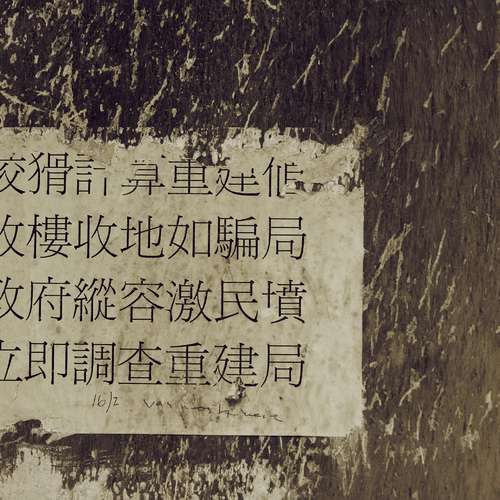 狡猾計算重建
收樓收地如騙局
政府縱容激民墳
立即調查重建局
16/2